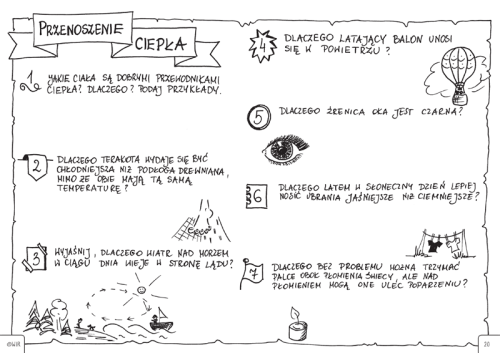 PRZENOSZENIE
CIEPŁA
1 JAKIE CIAŁA SĄ DOBRYMI PRZEWODNIKAMI
CIEPŁA? DLACZEGO? PODAJ PRZYKŁADY.
2 DLACZEGO TERAKOTA WYDAJE SIĘ BYĆ
CHŁODNIEJSZA NIŻ PODŁOGA DREWNIANA,
MIMO ŻE OBIE MAJĄ TĄ SAMĄ
TEMPERATURĘ?
3 WYJAŚNIJ, DLACZEGO WIATR NAD MORZEM
W CIĄGU DNIA WIEJE W STRONĘ LĄDU?
4 DLACZEGO LATAJĄCY BALON UNOSI
SIĘ W POWIETRZU?
5 DLACZEGO ŹRENICA OKA JEST CZARNA?
6 DLACZEGO LATEM W SŁONECZNY DZIEŃ LEPIEJ
NOSIĆ UBRANIA JAŚNIEJSZE NIŻ CIEMNIEJSZE?
7 DLACZEGO BEZ PROBLEMU MOŻNA TRZYMAĆ
PALCE OBOK PŁOMIENIA ŚWIECY, ALE NAD
PŁOMIENIEM MOGĄ ONE ULEC POPARZENIU?